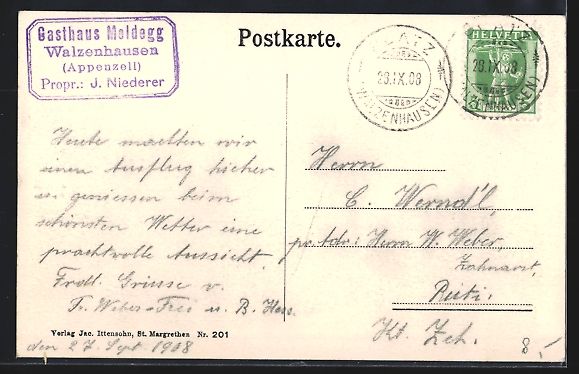 Gasthaus Meldegg
Walzenhausen
(Appenzell)
Propr.: J. Niederer
Postkarte.
PLATZ
26.IX.08
(WALZENHAUSEN)
HELVETIA
26.IX.08
(WALZENHAUSEN)
Heute machten wir
einen Ausflug hieher
u. geniessen beim
schönsten Wetter eine
prachtvolle Aussicht.
Frdl. Grüsse v.
Fr. Weber-Frei u. B. Hess.
Herrn
C. Werndl,
pr. adr: Herrn W. Weber,
Zahnarzt,
Rüti.
Kt. Zch.
Verlag Jac. Ittensohn, St. Margrethen Nr. 201
den 27. Sept 1908
8.-